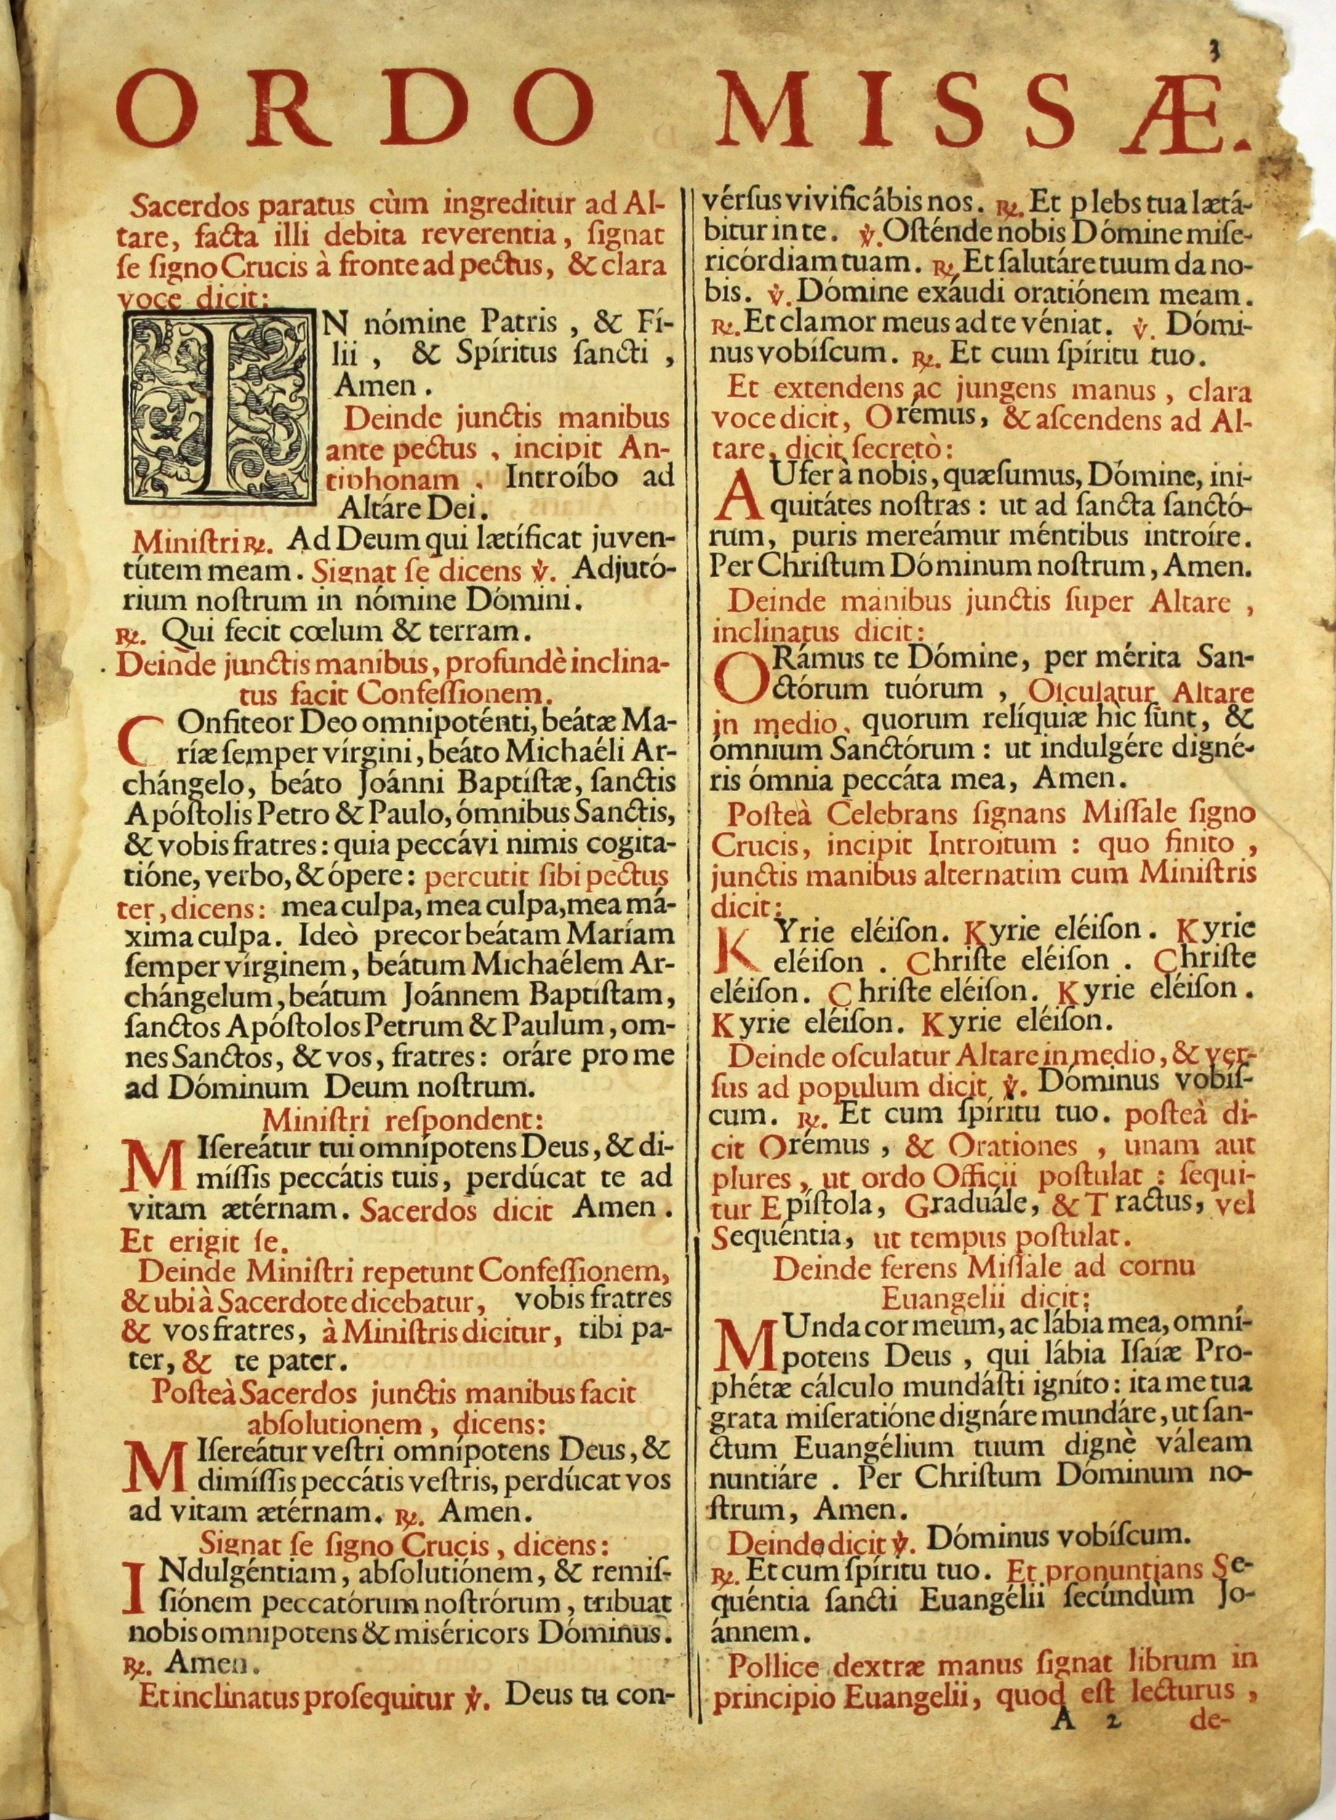 3
ORDO MISSÆ.
Sacerdos paratus cùm ingreditur ad Al-
tare, facta illi debita reverentia, ſignat
ſe ſigno Crucis à fronte ad pectus, & clara
voce dicit:
IN nómine Patris, & Fí-
lii, & Spíritus ſancti,
Amen.
Deinde junctis manibus
ante pectus, incipit An-
tiphonam. Introíbo ad
Altáre Dei.
Miniſtri ℟. Ad Deum qui lætíficat juven-
tútem meam. Signat ſe dicens ℣. Adjutó-
rium noſtrum in nómine Dómini.
℟. Qui fecit cœlum & terram.
Deinde junctis manibus, profundè inclina-
tus facit Confeſſionem.
COnfíteor Deo omnipoténti, beátæ Ma-
ríæ ſemper vírgini, beáto Michaéli Ar-
chángelo, beáto Joánni Baptíſtæ, ſanctis
Apóſtolis Petro & Paulo, ómnibus Sanctis,
& vobis fratres: quia peccávi nimis cogita-
tióne, verbo, & ópere: percutit ſibi pectus
ter, dicens: mea culpa, mea culpa, mea má-
xima culpa. Ideò precor beátam Maríam
ſemper vírginem, beátum Michaélem Ar-
chángelum, beátum Joánnem Baptiſtam,
ſanctos Apóſtolos Petrum & Paulum, om-
nes Sanctos, & vos, fratres: oráre pro me
ad Dóminum Deum noſtrum.
Miniſtri reſpondent:
MIſereátur tui omnípotens Deus, & di-
míſſis peccátis tuis, perdúcat te ad
vitam ætérnam. Sacerdos dicit Amen.
Et erigit ſe.
Deinde Miniſtri repetunt Confeſſionem,
& ubi à Sacerdote dicebatur, vobis fratres
& vos fratres, à Miniſtris dicitur, tibi pa-
ter, & te pater.
Poſteà Sacerdos junctis manibus facit
abſolutionem, dicens:
MIſereátur veſtri omnípotens Deus, &
dimíſſis peccátis veſtris, perdúcat vos
ad vitam ætérnam. ℟. Amen.
Signat ſe ſigno Crucis, dicens:
INdulgéntiam, abſolutiónem, & remiſ-
ſiónem peccatórum noſtrórum, tribuat
nobis omnipotens & miséricors Dóminus.
℟. Amen.
Et inclinatus proſequitur ℣. Deus tu con-
vérſus vivificábis nos. ℟. Et plebs tua lætá-
bitur in te. ℣. Oſténde nobis Dómine miſe-
ricórdiam tuam. ℟. Et ſalutáre tuum da no-
bis. ℣. Dómine exáudi oratiónem meam.
℟. Et clamor meus ad te véniat. ℣. Dómi-
nus vobíſcum. ℟. Et cum ſpíritu tuo.
Et extendens ac jungens manus, clara
voce dicit, Orémus, & aſcendens ad Al-
tare, dicit ſecretò:
AUfer à nobis, quæſumus, Dómine, ini-
quitátes noſtras: ut ad ſancta ſanctó-
rum, puris mereámur méntibus introíre.
Per Chriſtum Dóminum noſtrum, Amen.
Deinde manibus junctis ſuper Altare,
inclinatus dicit:
ORámus te Dómine, per mérita San-
ctórum tuórum, Oſculatur Altare
in medio, quorum relíquiæ hìc ſunt, &
ómnium Sanctórum: ut indulgére digné-
ris ómnia peccáta mea, Amen.
Poſteà Celebrans ſignans Miſſale ſigno
Crucis, incipit Introitum: quo finito,
junctis manibus alternatim cum Miniſtris
dicit:
KYrie eléiſon. Kyrie eléiſon. Kyrie
eléiſon. Chriſte eléiſon. Chriſte
eléiſon. Chriſte eléiſon. Kyrie eléiſon.
Kyrie eléiſon. Kyrie eléiſon.
Deinde oſculatur Altare in medio, & ver-
ſus ad populum dicit ℣. Dóminus vobíſ-
cum. ℟. Et cum ſpíritu tuo. poſteà di-
cit Orémus, & Orationes, unam aut
plures, ut ordo Officii poſtulat: ſequi-
tur Epíſtola, Graduále, & Tractus, vel
Sequéntia, ut tempus poſtulat.
Deinde ferens Miſſale ad cornu
Euangelii dicit:
MUnda cor meum, ac lábia mea, omní-
potens Deus, qui lábia Iſaíæ Pro-
phétæ cálculo mundáſti igníto: ita me tua
grata miſeratióne dignáre mundáre, ut ſan-
ctum Euangélium tuum dignè váleam
nuntiáre. Per Chriſtum Dóminum no-
ſtrum, Amen.
Deinde dicit ℣. Dóminus vobíſcum.
℟. Et cum ſpíritu tuo. Et pronuntians Se-
quéntia ſancti Euangélii ſecúndùm Jo-
ánnem.
Pollice dextræ manus ſignat librum in
principio Euangelii, quod eſt lecturus,
A 2 de-